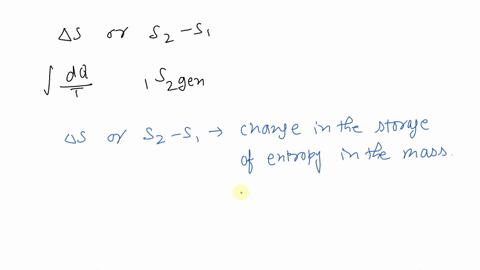 ΔS or S₂-S₁
∫ dQ/T ₁S₂gen
ΔS or S₂-S₁ → change in the storage
of entropy in the mass.